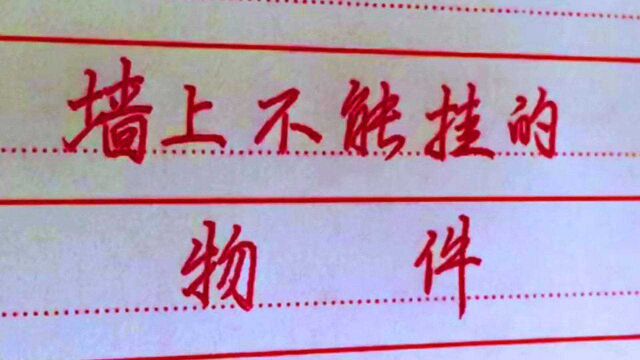 墙上不能挂的
物件